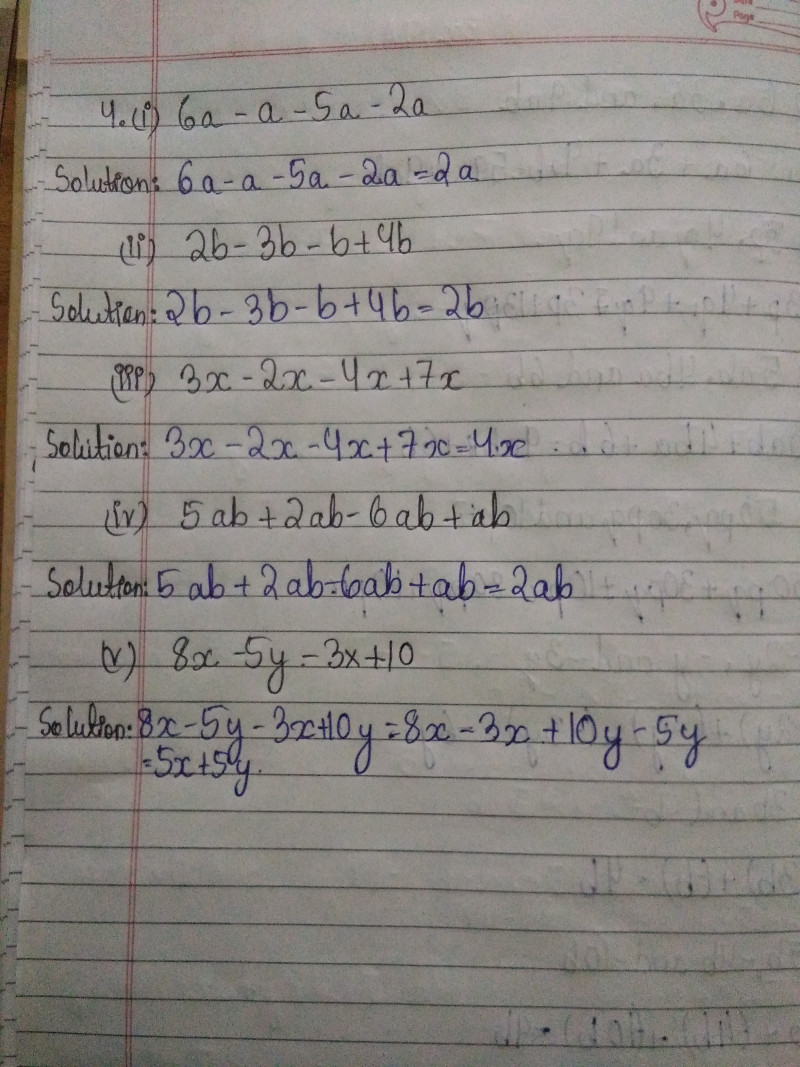 Page
4. (i) 6a - a - 5a - 2a
Solution: 6a - a - 5a - 2a = 2a
(ii) 2b - 3b - b + 4b
Solution: 2b - 3b - b + 4b = 2b
(iii) 3x - 2x - 4x + 7x
Solution: 3x - 2x - 4x + 7x = 4x
(iv) 5ab + 2ab - 6ab + ab
Solution: 5ab + 2ab - 6ab + ab = 2ab
(v) 8x - 5y - 3x + 10
Solution: 8x - 5y - 3x + 10y = 8x - 3x + 10y - 5y
= 5x + 5y.